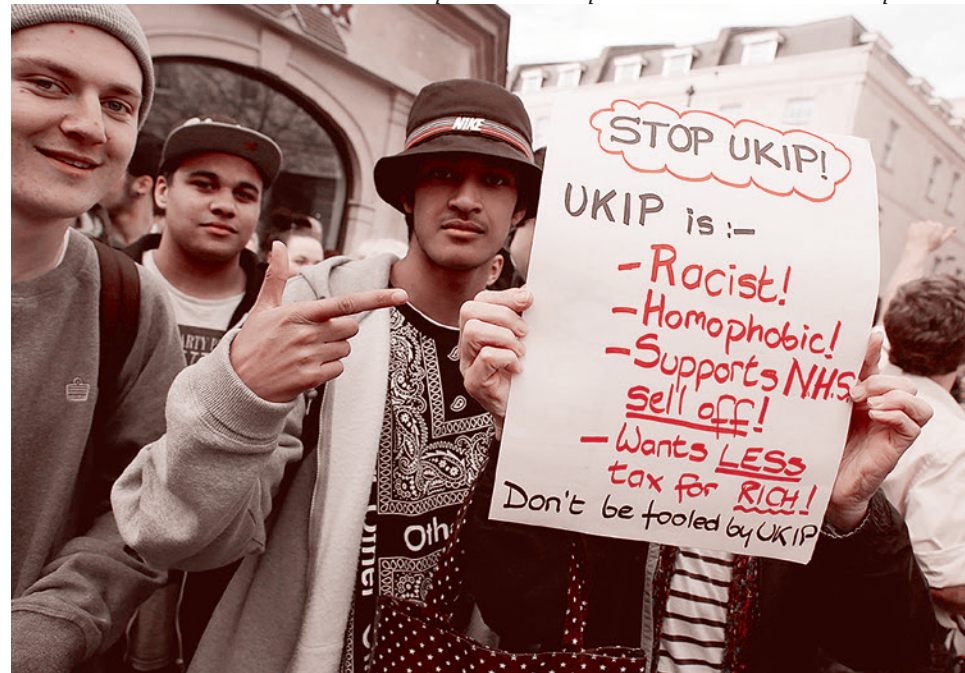 NIKE
STOP UKIP!
UKIP is :-
- Racist!
- Homophobic!
- Supports N.H.S.
Sell off!
- Wants LESS
tax for RICH!
Don't be fooled by UKIP
Oth